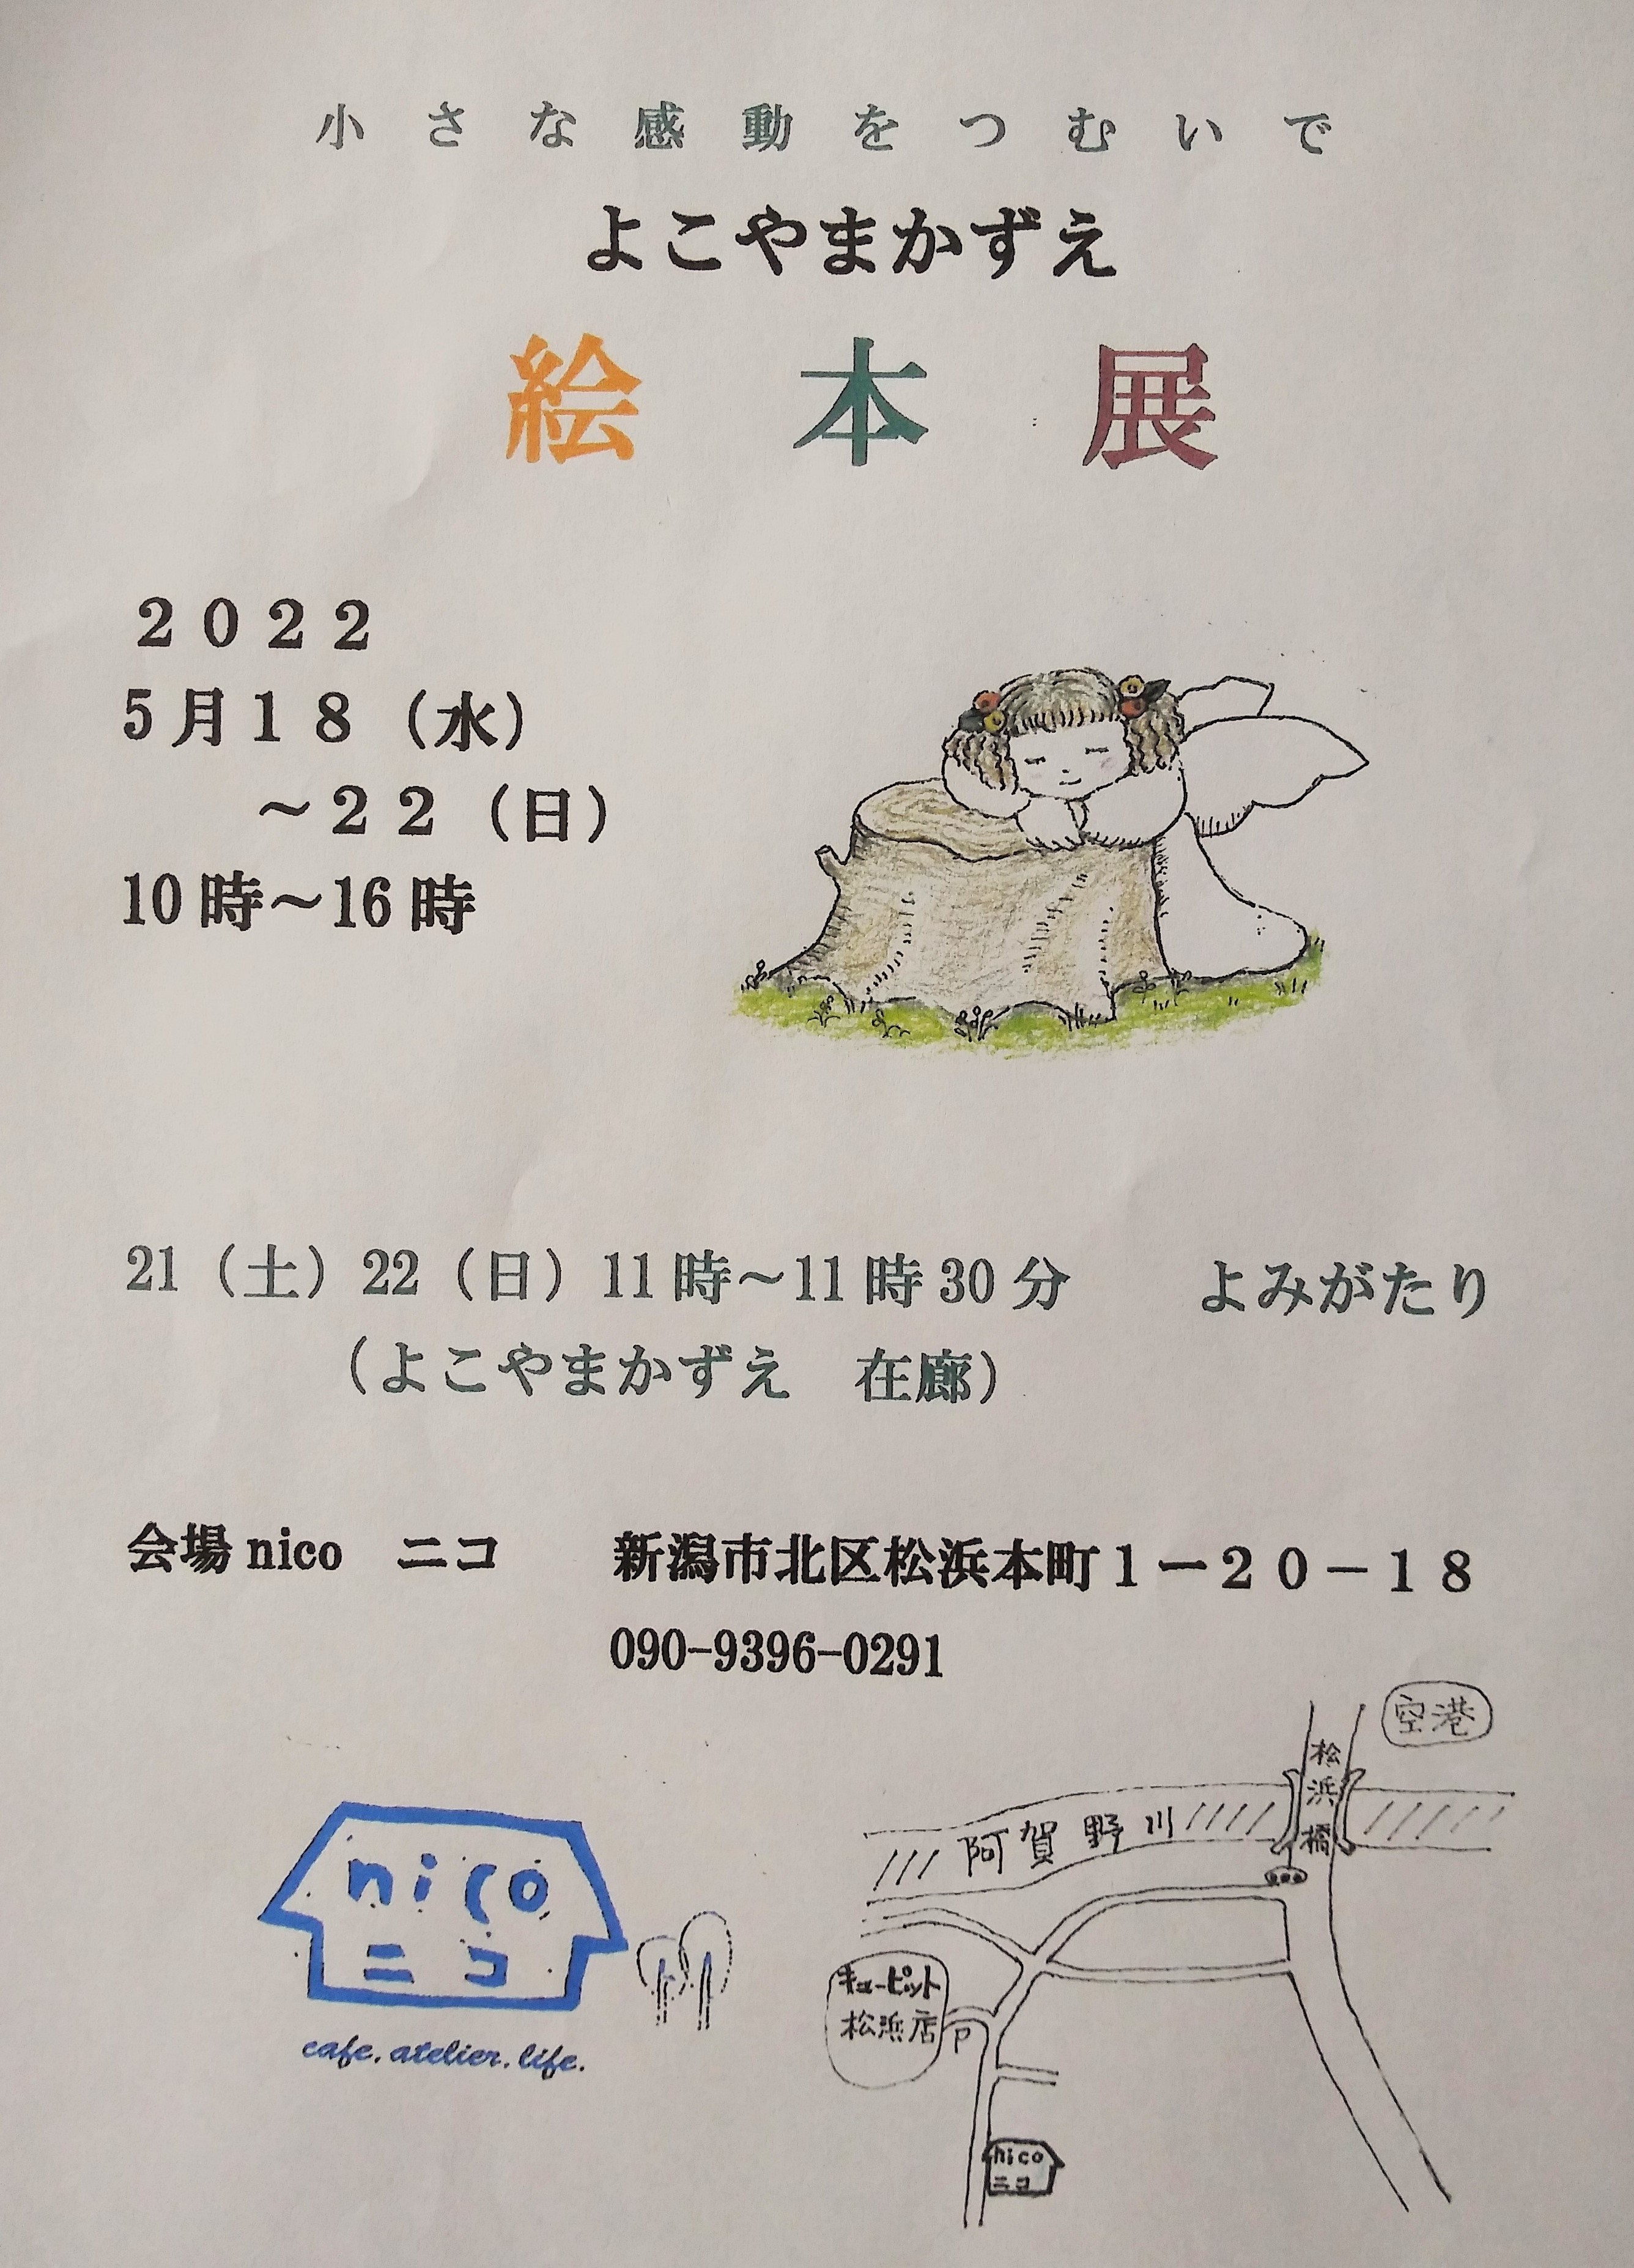 小さな感動をつむいで
よこやまかずえ
絵本展
２０２２
5月１８（水）
～２２（日）
10時～16時
21（土）22（日）11時～11時30分　よみがたり
（よこやまかずえ　在廊）
会場nico　ニコ　新潟市北区松浜本町１ー２０－１８
090-9396-0291
空港
松浜橋
阿賀野川
nico
ニコ
cafe.atelier.life.
キューピット
松浜店
P
nico
ニコ